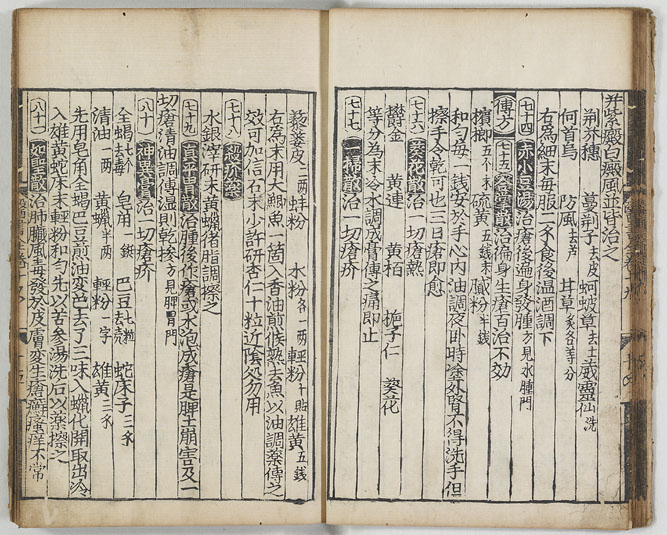 并紫癜白癜風並皆治之
荆芥穗 蔓荆子去皮 蚵蚾草去土 葳靈仙洗
何首烏 防風去芦 甘草炙各等分
右為細末每服二錢食後温酒調下
七十四 赤小豆湯 治瘡後遍身發腫方見水腫門
傅方 七十五 治徧身生瘡百治不効
檳榔五个末 硫黄五錢末 膩粉半錢
和勻每一錢安於手心内油調夜卧時塗外腎不得洗手但
擦手令乾可也三日瘡即愈
七十六 葵花散 治一切瘡熱
欝金 黄連 黄栢 梔子仁 葵花
等分為末冷水調成膏傅之痛即止
七十七 一掃散 治一切瘡疥
藜蔞皮二兩 蚌粉 水粉各一兩 輕粉十貼 雄黄五錢
右為末用大鯽魚一箇入香油煎候熟去魚以油調藥傅之
效可加信石末少許研杏仁十粒近陰処勿用
七十八
水銀滓研末黄蠟猪脂調擦之
七十九 真平胃散 治腫後作瘡或水泡成瘡是脾土崩害及一
切瘡清油調傅濕則乾摻方見脾胃門
八十 神異膏 治一切瘡疥
全蝎去毒 皂角 巴豆七粒去殼 蛇床子三錢
清油一兩 黄蠟半兩 輕粉一字 雄黄三錢
先用皂角全蝎巴豆煎油變色去了三味入蠟化開取出冷
入雄黄蛇床末輕粉和勻先以苦參湯洗后以藥擦之
八十一 如聖散 治肺臟風毒發於皮膚變生瘡癬瘙痒不常